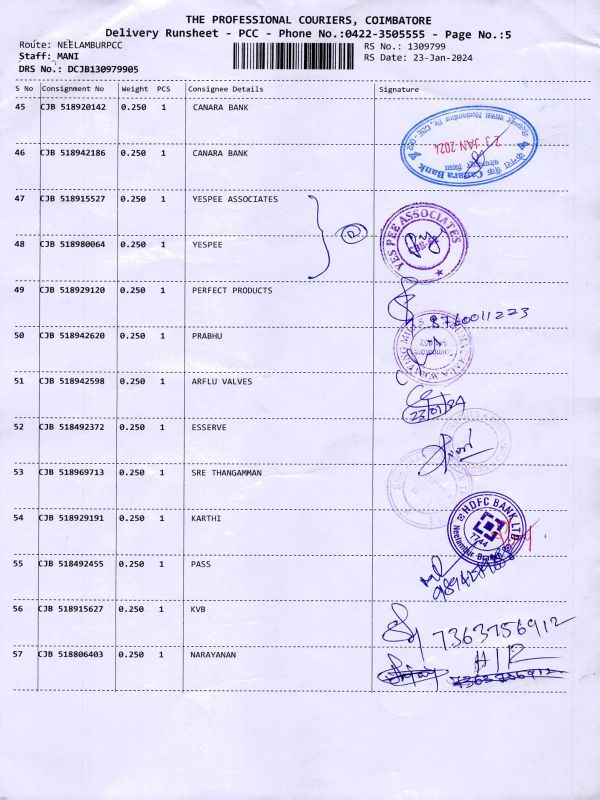 THE PROFESSIONAL COURIERS, COIMBATORE
Delivery Runsheet - PCC - Phone No.:0422-3505555 - Page No.:5
Route: NEELAMBURPCC RS No.: 1309799
Staff: MANI RS Date: 23-Jan-2024
DRS No.: DCJB130979905
S No Consignment No Weight PCS Consignee Details Signature
45 CJB 518920142 0.250 1 CANARA BANK
Canara Bank
23 JAN 2024
46 CJB 518942186 0.250 1 CANARA BANK
47 CJB 518915527 0.250 1 YESPEE ASSOCIATES
YES PEE ASSOCIATES
48 CJB 518980064 0.250 1 YESPEE
49 CJB 518929120 0.250 1 PERFECT PRODUCTS
8760011223
50 CJB 518942620 0.250 1 PRABHU
51 CJB 518942598 0.250 1 ARFLU VALVES
23/01/24
52 CJB 518492372 0.250 1 ESSERVE
53 CJB 518969713 0.250 1 SRE THANGAMMAN
54 CJB 518929191 0.250 1 KARTHI
HDFC BANK LTD
Neelambur Branch
7744
55 CJB 518492455 0.250 1 PASS
56 CJB 518915627 0.250 1 KVB
7363756912
57 CJB 518806403 0.250 1 NARAYANAN